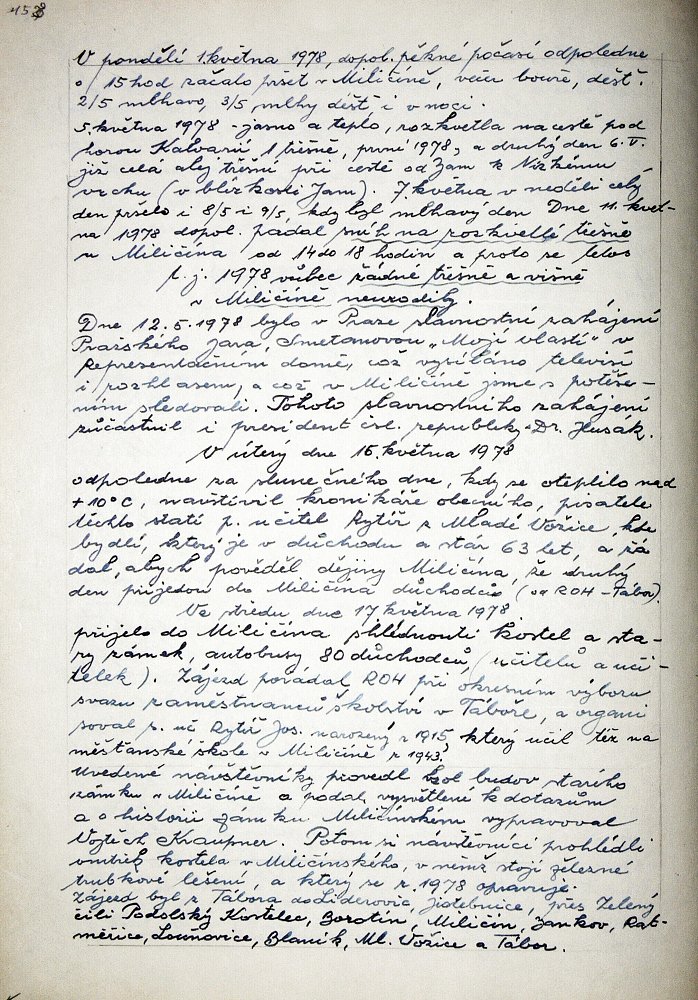 V pondělí 1. května 1978, dopol. pěkné počasí odpoledne
o 15 hod začalo pršet v Miličíně, večer bouře, déšť.
2/5 mlhavo, 3/5 mlhy déšť i v noci.
5. května 1978 - jasno a teplo, rozkvetla na cestě pod
horou Kalvarií 1 třešně, první 1978, a druhý den 6. V.
již celá alej třešní při cestě od Jam k Nízkému
vrchu (v blízkosti Jam). 7. května v neděli celý
den pršelo i 8/5 i 9/5, kdy byl mlhavý den Dne 11. květ-
na 1978 dopol. padal sníh na rozkvetlé třešně
u Miličína od 14 do 18 hodin a proto se letos
t. j. 1978 vůbec žádné třešně a višně
v Miličíně neurodily.
Dne 12.5.1978 bylo v Praze slavnostní zahájení
Pražského jara, Smetanovou „Mojí vlastí" v
Representačním domě, což vysíláno televisí
i rozhlasem, a což v Miličíně jsme s potěše-
ním sledovali. Tohoto slavnostního zahájení
zúčastnil i president čsl. republiky Dr. Husak.
V úterý dne 16. května 1978
odpoledne za slunečného dne, kdy se oteplilo nad
+10°C, navštívil kronikáře obecního, pisatele
těchto statí p. učitel Rytíř z Mladé Vožice, kde
bydlí, který je v důchodu a stár 63 let, a žá
dal, abych pověděl dějiny Miličína, že druhý
den přijedou do Miličína důchodci (od ROH - Tábor).
Ve středu dne 17 května 1978
přijelo do Miličína shlédnouti kostel a sta-
rý zámek, autobusy 80 důchodců, (učitelů a uči-
telek). Zájezd pořádal ROH při okresním výboru
svazu zaměstnanců školství v Táboře, a organi
soval p. uč Rytíř Jos. narozený r 1915, který učil též na
měšťanské škole v Miličíně r 1943.
Uvedené návštěvníky provedl kol budov starého
zámku v Miličíně a podal vysvětlené k dotazům
a o historii zámku Miličínském vypravoval
Vojtěch Kraupner. Potom si návštěvníci prohlédli
vnitřek kostela v Miličínského, v němž stojí železné
trubkové lešení, a který se r. 1978 opravuje.
Zájezd byl z Tábora do Liderovic, Jistebnice, přes Zelený
čili Podolský Kostelec, Borotín, Miličín, Jankov, Rat-
měřice, Louňovice, Blaník, Ml. Vožice a Tábor.